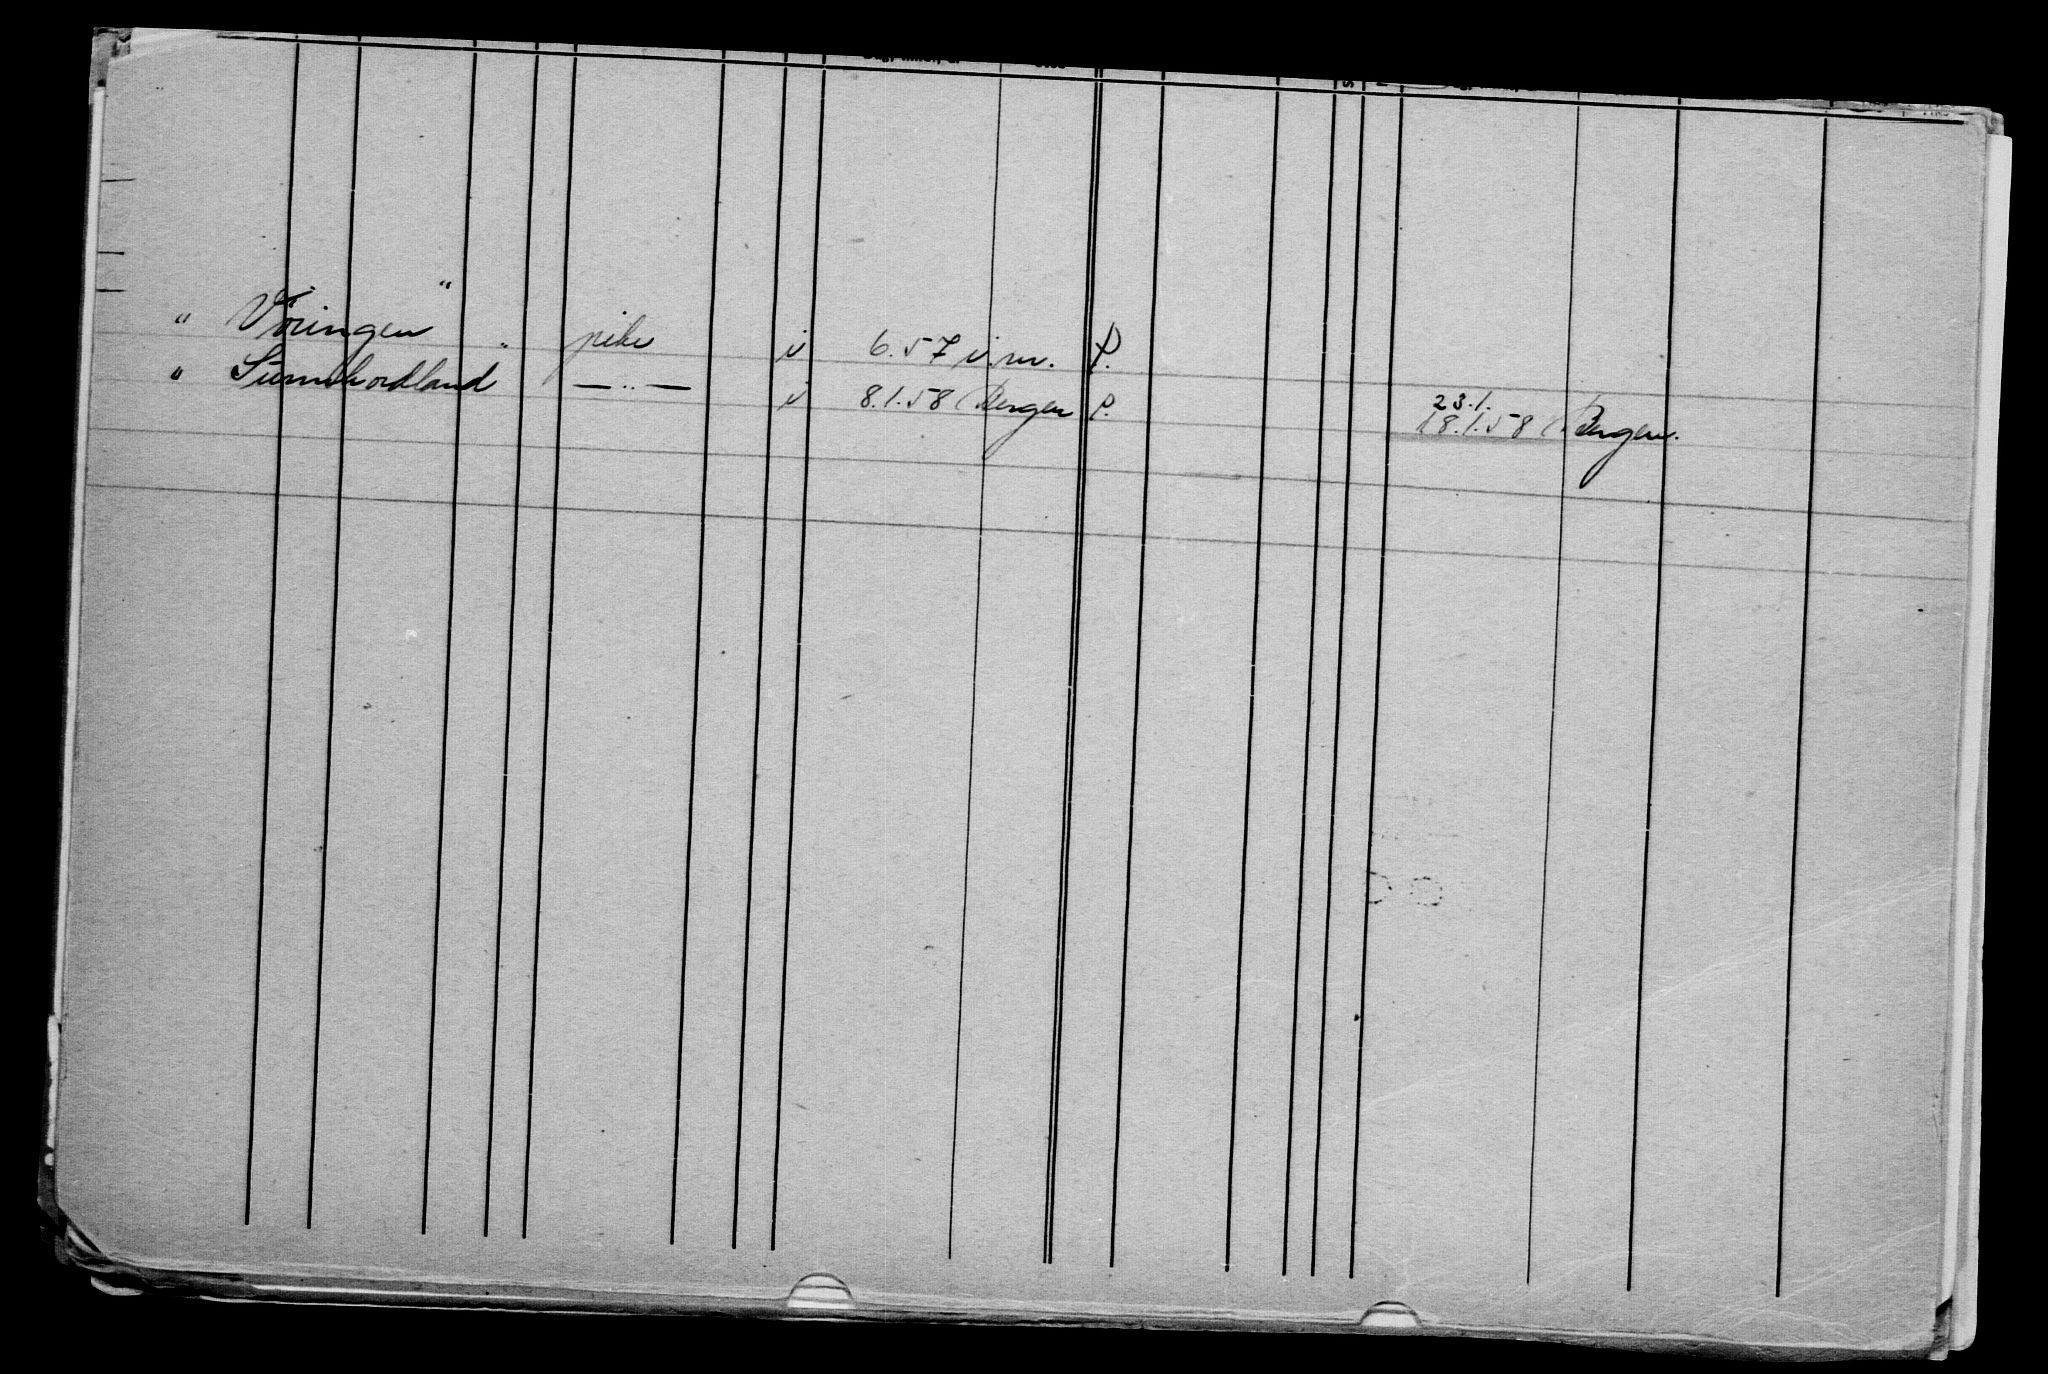 " Vöringen " pike i 6.57 i.m. P.
" Sunnhordland " — " — i 8.1.58 Bergen P. 23.1.
18.1.58 Bergen.